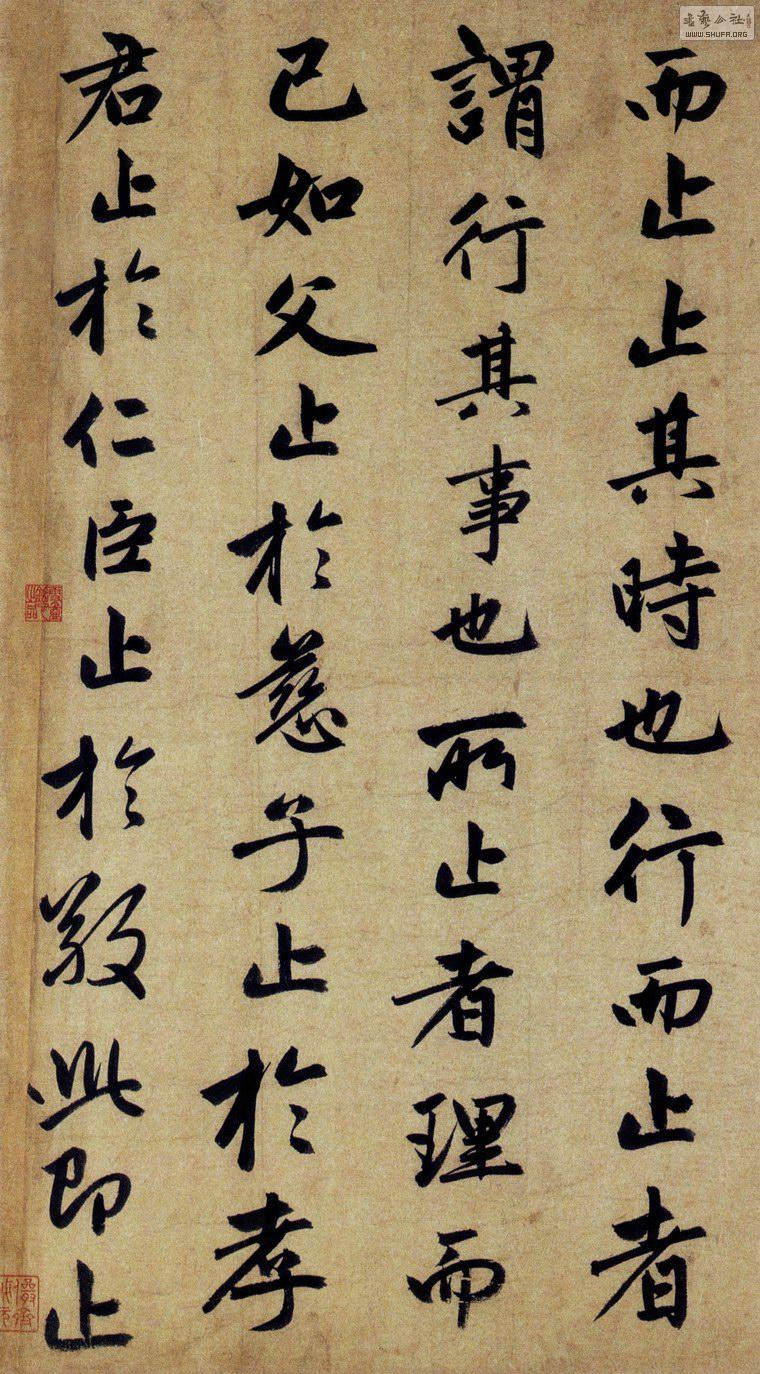 而止止其時也行而止者
謂行其事也所止者理而
已如父止於慈子止於孝
君止於仁臣止於敬此即止
WWW.SHUFA.ORG